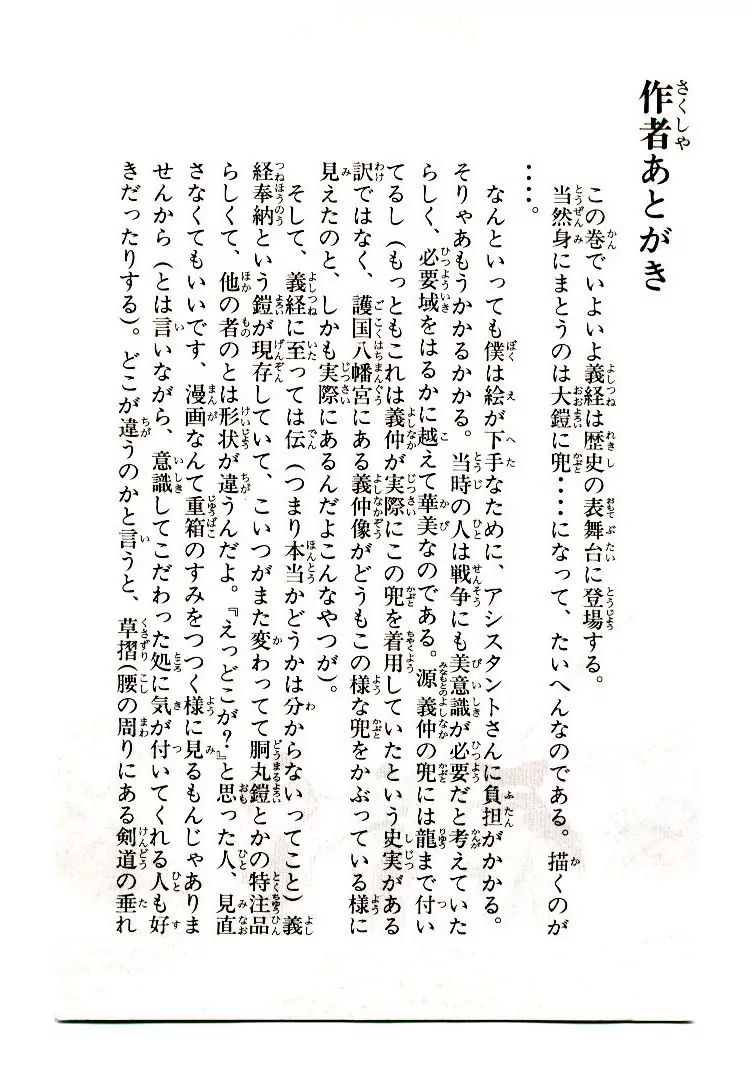 作者あとがき
この巻でいよいよ義経は歴史の表舞台に登場する。
当然身にまとうのは大鎧に兜‥‥になって、たいへんなのである。描くのが
‥‥。
なんといっても僕は絵が下手なために、アシスタントさんに負担がかかる。
そりゃあもうかかるかかる。当時の人は戦争にも美意識が必要だと考えていた
らしく、必要域をはるかに越えて華美なのである。源義仲の兜には龍まで付い
てるし（もっともこれは義仲が実際にこの兜を着用していたという史実がある
訳ではなく、護国八幡宮にある義仲像がどうもこの様な兜をかぶっている様に
見えたのと、しかも実際にあるんだよこんなやつが）。
そして、義経に至っては伝（つまり本当かどうかは分からないってこと）義
経奉納という鎧が現存していて、こいつがまた変わってて胴丸鎧とかの特注品
らしくて、他の者のとは形状が違うんだよ。『えっどこが？』と思った人、見直
さなくてもいいです、漫画なんて重箱のすみをつつく様に見るもんじゃありま
せんから（とは言いながら、意識してこだわった処に気が付いてくれる人も好
きだったりする）。どこが違うのかと言うと、草摺（腰の周りにある剣道の垂れ